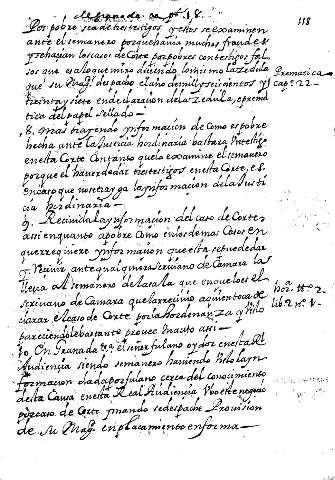 118
Por pobre, sea de tres testigos y estos se examinen
ante el semanero porque havia muchos fraudes
y se havian los casos de Corte por pobres con testigos fal-
sos que es a lo que miro diciendo lo mismo la Zedula
que su Magd. despacho el año de mill y seicientos y
treinta y siete en declaracion de la Zedula, e prema
tica del papel sellado—
Prematica
cap. 22—
8. mas trayendo ynformacion de como es pobre
hecha ante la Justicia hordinaria bastara un testigo
en esta Corte con tanto que lo examine el semanero
porque el haver de dar tres testigos en esta Corte, es
en caso que no se trayga la ynformacion de la Justi
cia hordinaria—
9. Recivida la ynformacion del caso de Corte
assi en quanto a pobre como en los demas casos en
que requiere ynformacion que esta se puede dar
y Recivir ante qualquiera scrivano de Camara las
lleva al semanero de la sala que
scrivano de Camara que la recivio
el caso de Corte por la hordenanza y visto
pareciendole bastante provee un auto assi—
10. En Granada el señor fulano oydor en esta Rl.
Audiencia siendo semanero haviendo visto la yn
formacion dada por fulano cerca del conocimiento
desta Causa en esta Real Audiencia huvo este negocio
por caso de Corte y mando se despache Provision
de su Magd. emplacamiento en forma—